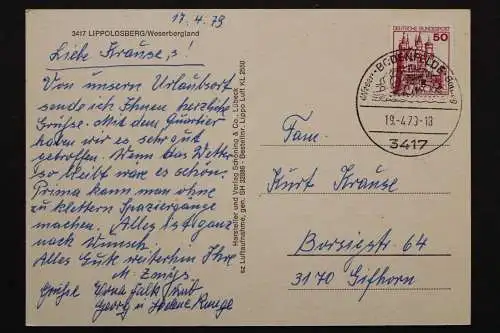 17.4.79
3417 LIPPOLDSBERG/Weserbergland
Liebe Krause,s!
Von unserm Urlaubsort
sende ich Ihnen herzliche
Grüsse. Mit dem Quartier
haben wir es sehr gut
getroffen. Wenn das Wetter
so bleibt wäre es schön.
Prima kann man ohne
zu klettern Spaziergänge
machen. Alles ist ganz
nach Wunsch.
Alles Gute weiterhin Ihre
Grüsse Erna Falk
Georg u. Helene Runge
Hersteller und Verlag Schöning & Co., Lübeck
Luftaufnahme, gen. SH - Bestellnr. Lippo Luft KL 2550
DEUTSCHE BUNDESPOST
50
BODENFELDE
19.-4.79-18
3417
Fam.
Kurt Krause
Borsigstr. 64
3170 Gifhorn